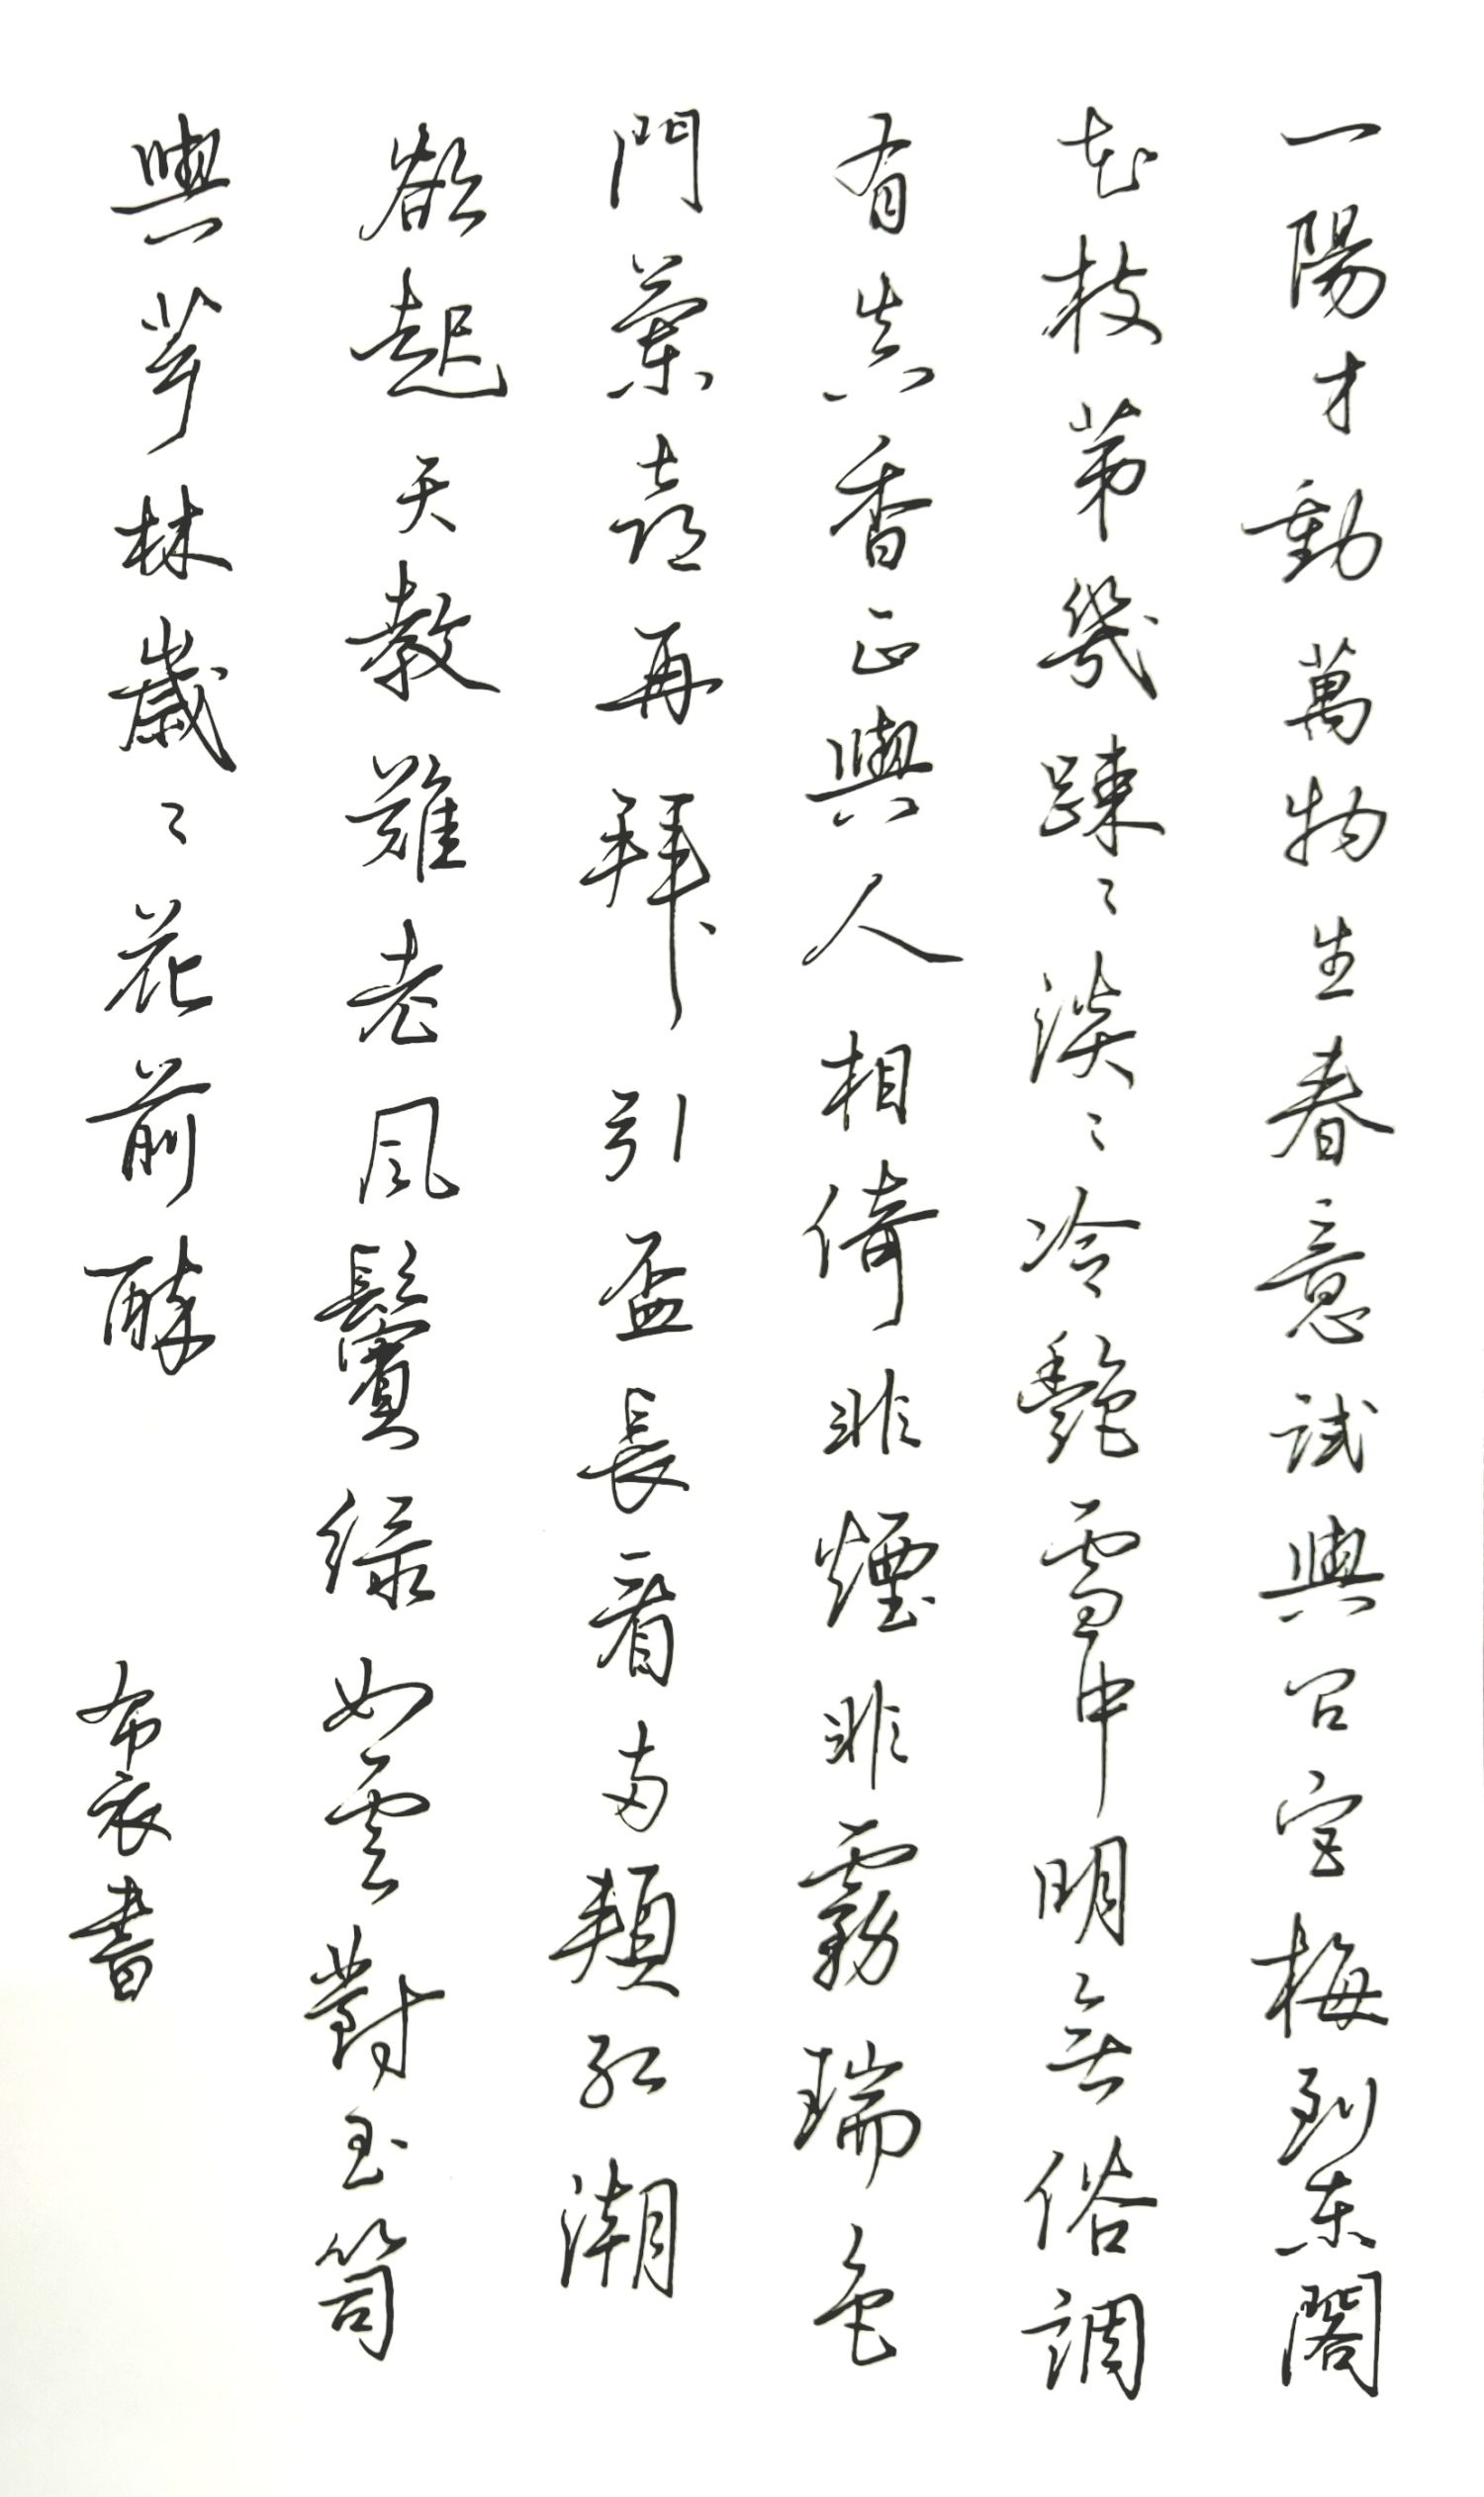 一陽才動萬物生春意試與問宮梅到東閣
花枝第幾踈々淡々冷艷雪中明無俗調
有真香正與人相倚非煙非霧瑞色
門蘭喜再拜引盃長看兩頰紅潮
欲起天教難老風鬢綠如雲對玉笥
與芗林歲々花前醉
布衣書